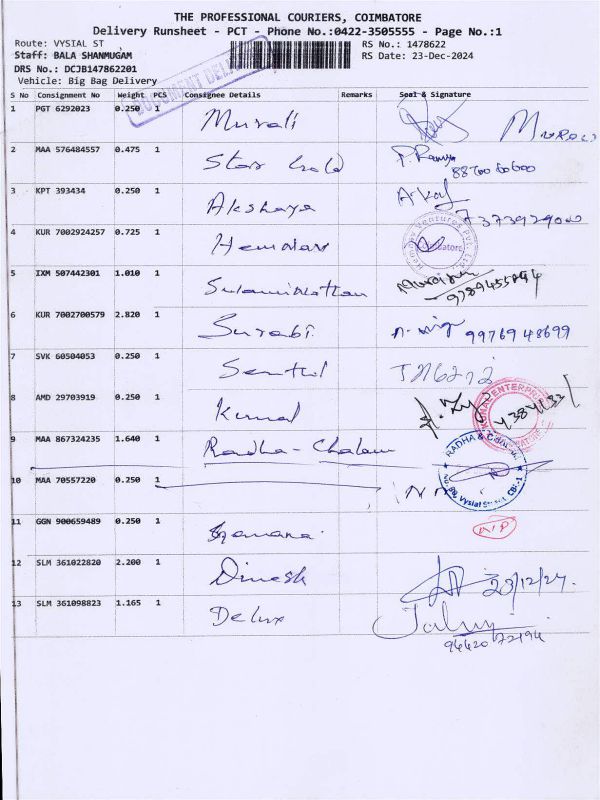 THE PROFESSIONAL COURIERS, COIMBATORE
Delivery Runsheet - PCT - Phone No.:0422-3505555 - Page No.:1
Route: VYSIAL ST
RS No.: 1478622
Staff: BALA SHANMUGAM
RS Date: 23-Dec-2024
DRS No.: DCJB147862201
Vehicle: Big Bag Delivery
S No Consignment No Weight PCS Consignee Details Remarks Seal & Signature
1 PGT 6292023 0.250 1 Murali
2 MAA 576484557 0.475 1 Star Gold
3 KPT 393434 0.250 1 Akshaya
4 KUR 7002924257 0.725 1
5 IXM 507442301 1.010 1
6 KUR 7002700579 2.820 1 Surabi 99769 48699
7 SVK 60504053 0.250 1 Senthil
8 AMD 29703919 0.250 1 Kunal
9 MAA 867324235 1.640 1 Radha-Chalam
10 MAA 70557220 0.250 1
11 GGN 900659489 0.250 1
12 SLM 361022820 2.200 1 Dinesh 23/12/24.
13 SLM 361098823 1.165 1 Delux
94420 72194